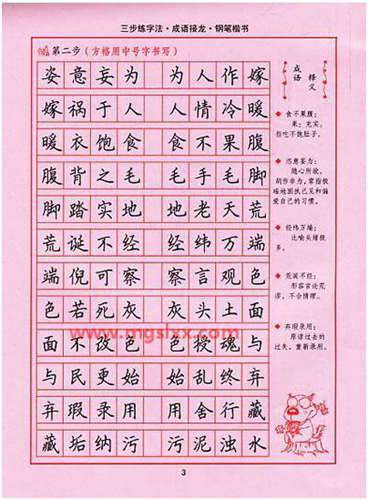 三步练字法·成语接龙·钢笔楷书
第二步（方格用中号字书写）
姿意妄为 为人作嫁
嫁祸于人 人情冷暖
暖衣饱食 食不果腹
腹背之毛 毛手毛脚
脚踏实地 地老天荒
荒诞不经 经纬万端
端倪可察 察言观色
色若死灰 灰头土面
面不改色 色授魂与
与民更始 始乱终弃
弃瑕录用 用舍行藏
藏垢纳污 污泥浊水
成语释义
食不果腹：
果：充实。
指吃不饱肚子。
恣意妄为：
随心所欲，
胡作非为，常指
地固执己见和偏
爱自己的习惯。
经纬万端：
比喻头绪很
多。
荒诞不经：
形容言论荒
谬，不合情理。
弃瑕录用：
原谅过去的
过失，重新录用。
www.mgslxx.com
3